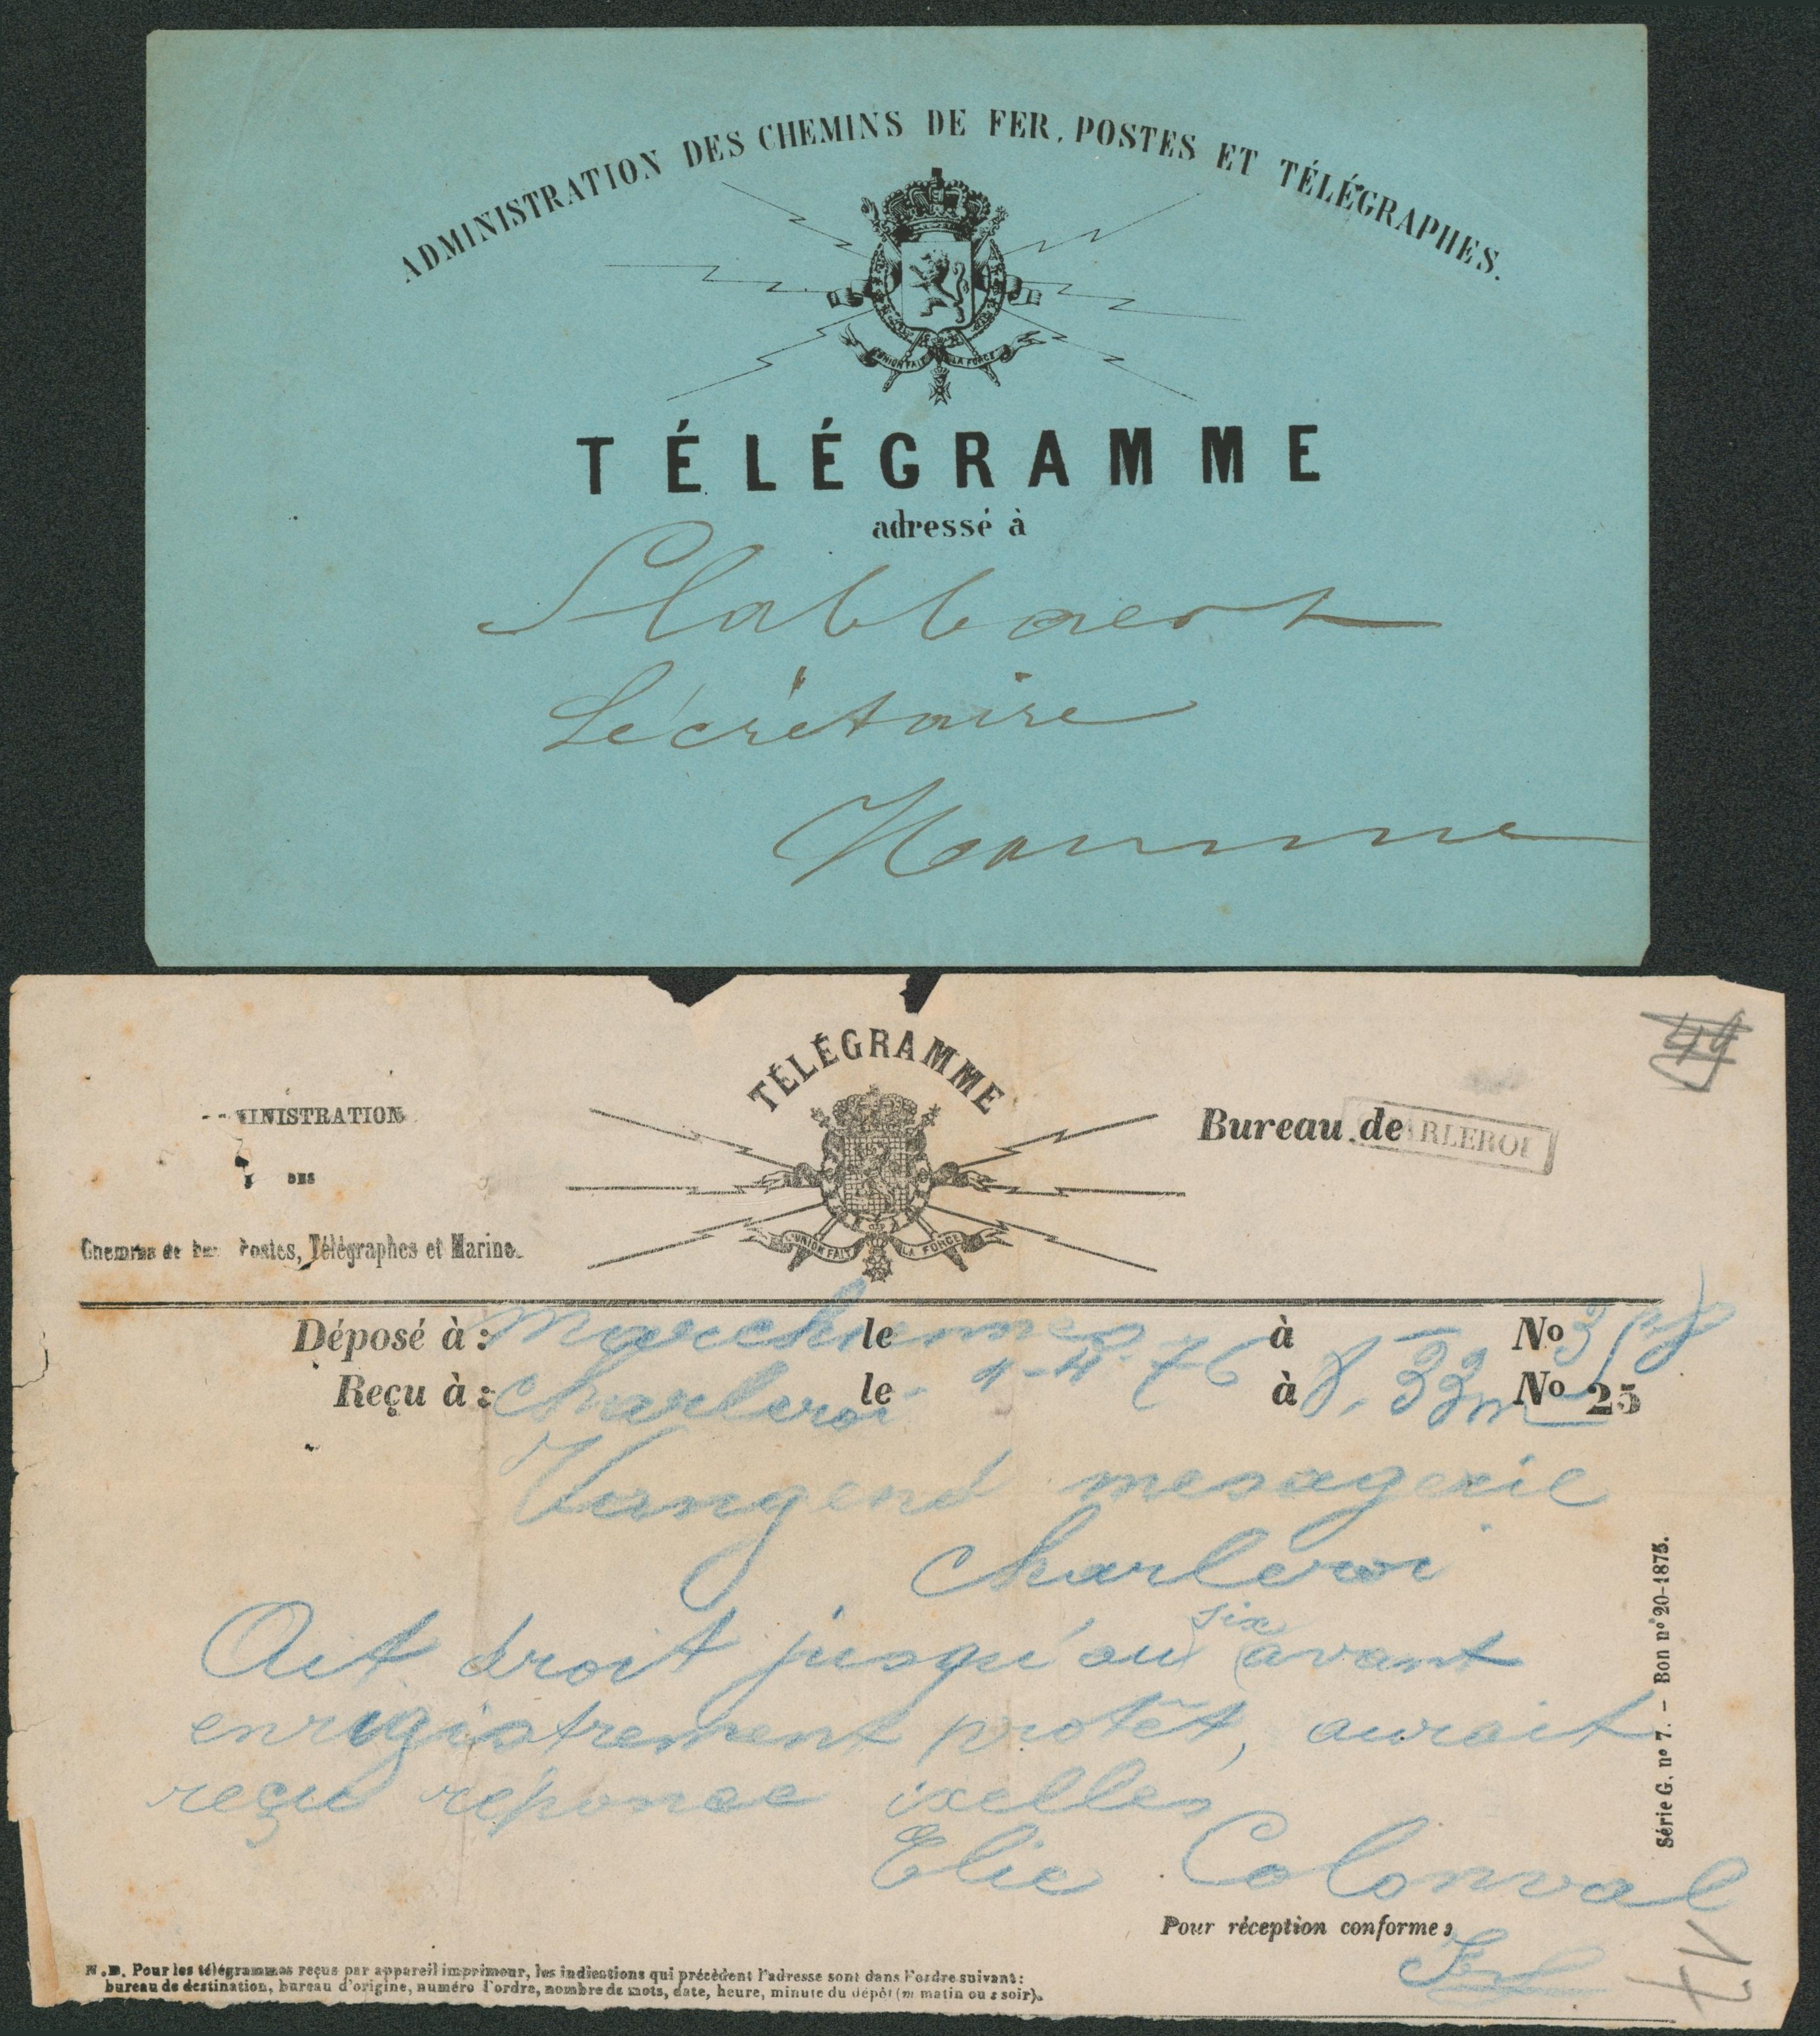 ADMINISTRATION DES CHEMINS DE FER, POSTES ET TÉLÉGRAPHES.
L'UNION FAIT LA FORCE
TÉLÉGRAMME
adressé à
Slabbaert
Sécrétaire
Hamme
49
TÉLÉGRAMME
MINISTRATION
DES
Chemins de Fer Postes, Télégraphes et Marine.
L'UNION FAIT LA FORCE
Bureau de ARLEROI
Déposé à : Marchiennes le à No
Reçu à : Charleroi le 1-4-76 à 8. 33m No 25
mesagerie
Charleroi
Ait droit jusqu'au six avant
enrigistrement protêt, aurait
reçu réponse ixelles
Elie Colonval
Pour réception conforme :
Série G. nº 7. – Bon nº 20-1875.
N. B. Pour les télégrammes reçus par appareil imprimeur, les indications qui précèdent l'adresse sont dans l'ordre suivant :
bureau de destination, bureau d'origine, numéro d'ordre, nombre de mots, date, heure, minute du dépôt (m matin ou s soir).